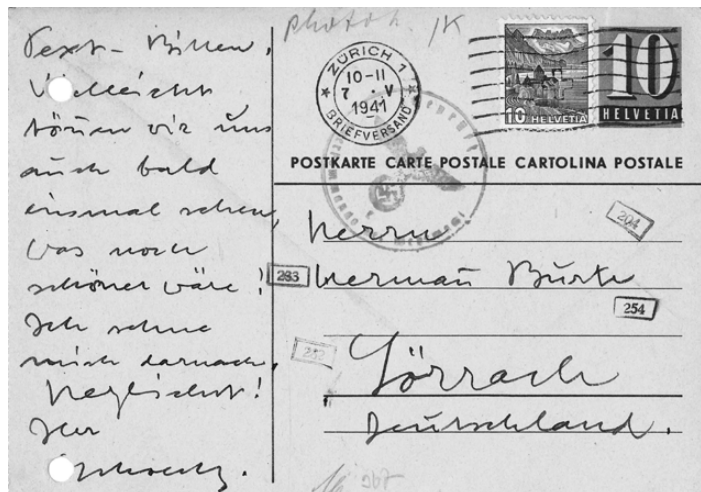 Text-Willen.
Vielleicht
können wir uns
auch bald
einmal sehen,
was noch
schöner wäre!
Ich sehne
mich darnach.
Herzlichst!
Ihr
Schoeck.
ZÜRICH 1
10-11
7. V
1941
BRIEFVERSAND
10 HELVETIA
10
HELVETIA
POSTKARTE CARTE POSTALE CARTOLINA POSTALE
Herrn
Herman Burte
Lörrach
Deutschland.
204
283
254
212